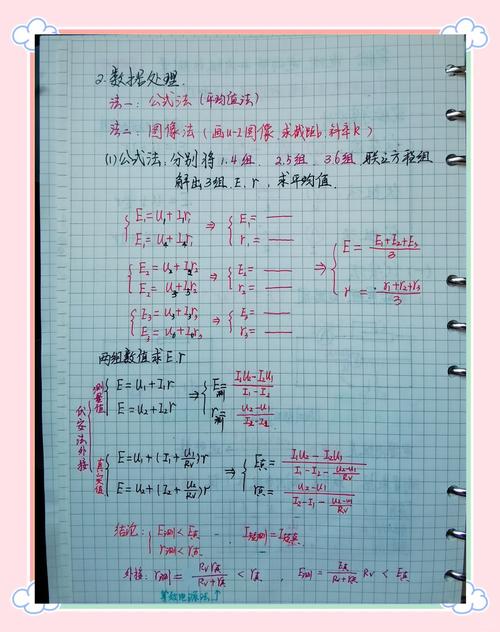 2.数据处理.
法一:公式法(平均值法)
法二:图像法(画U-I图像.求截距b.斜率k)
(1)公式法,分别将1.4组. 2.5组. 3.6组.联立方程组
解出3组.E.r,求平均值.
{ E₁=U₁+I₁r₁ ⇒ { E₁=——
E₁=U₄+I₄r₁ r₁=——
{ E₂=U₂+I₂r₂ ⇒ { E₂=——
E₂=U₅+I₅r₂ r₂=——
{ E₃=U₃+I₃r₃ ⇒ { E₃=——
E₃=U₆+I₆r₃ r₃=——
⇒ { E=(E₁+E₂+E₃)/3
r=(r₁+r₂+r₃)/3
两组数值求E.r
伏安法外接
测量值 { E=U₁+I₁r ⇒ { E测=(I₁U₂-I₂U₁)/(I₁-I₂)
E=U₂+I₂r r测=(U₂-U₁)/(I₁-I₂)
真实值 { E=U₁+(I₁+U₁/Rv)r ⇒ { E真=(I₁U₂-I₂U₁)/(I₁-I₂-(U₂-U₁)/Rv)
E=U₂+(I₂+U₂/Rv)r r真=(U₂-U₁)/(I₁-I₂-(U₂-U₁)/Rv)
结论: { E测<E真 - I短测=I短真
r测<r真
外接:r测=Rv r真/(Rv+r真) < r真 , E测=E真/(Rv+r真) Rv < E真
等效电源法↑